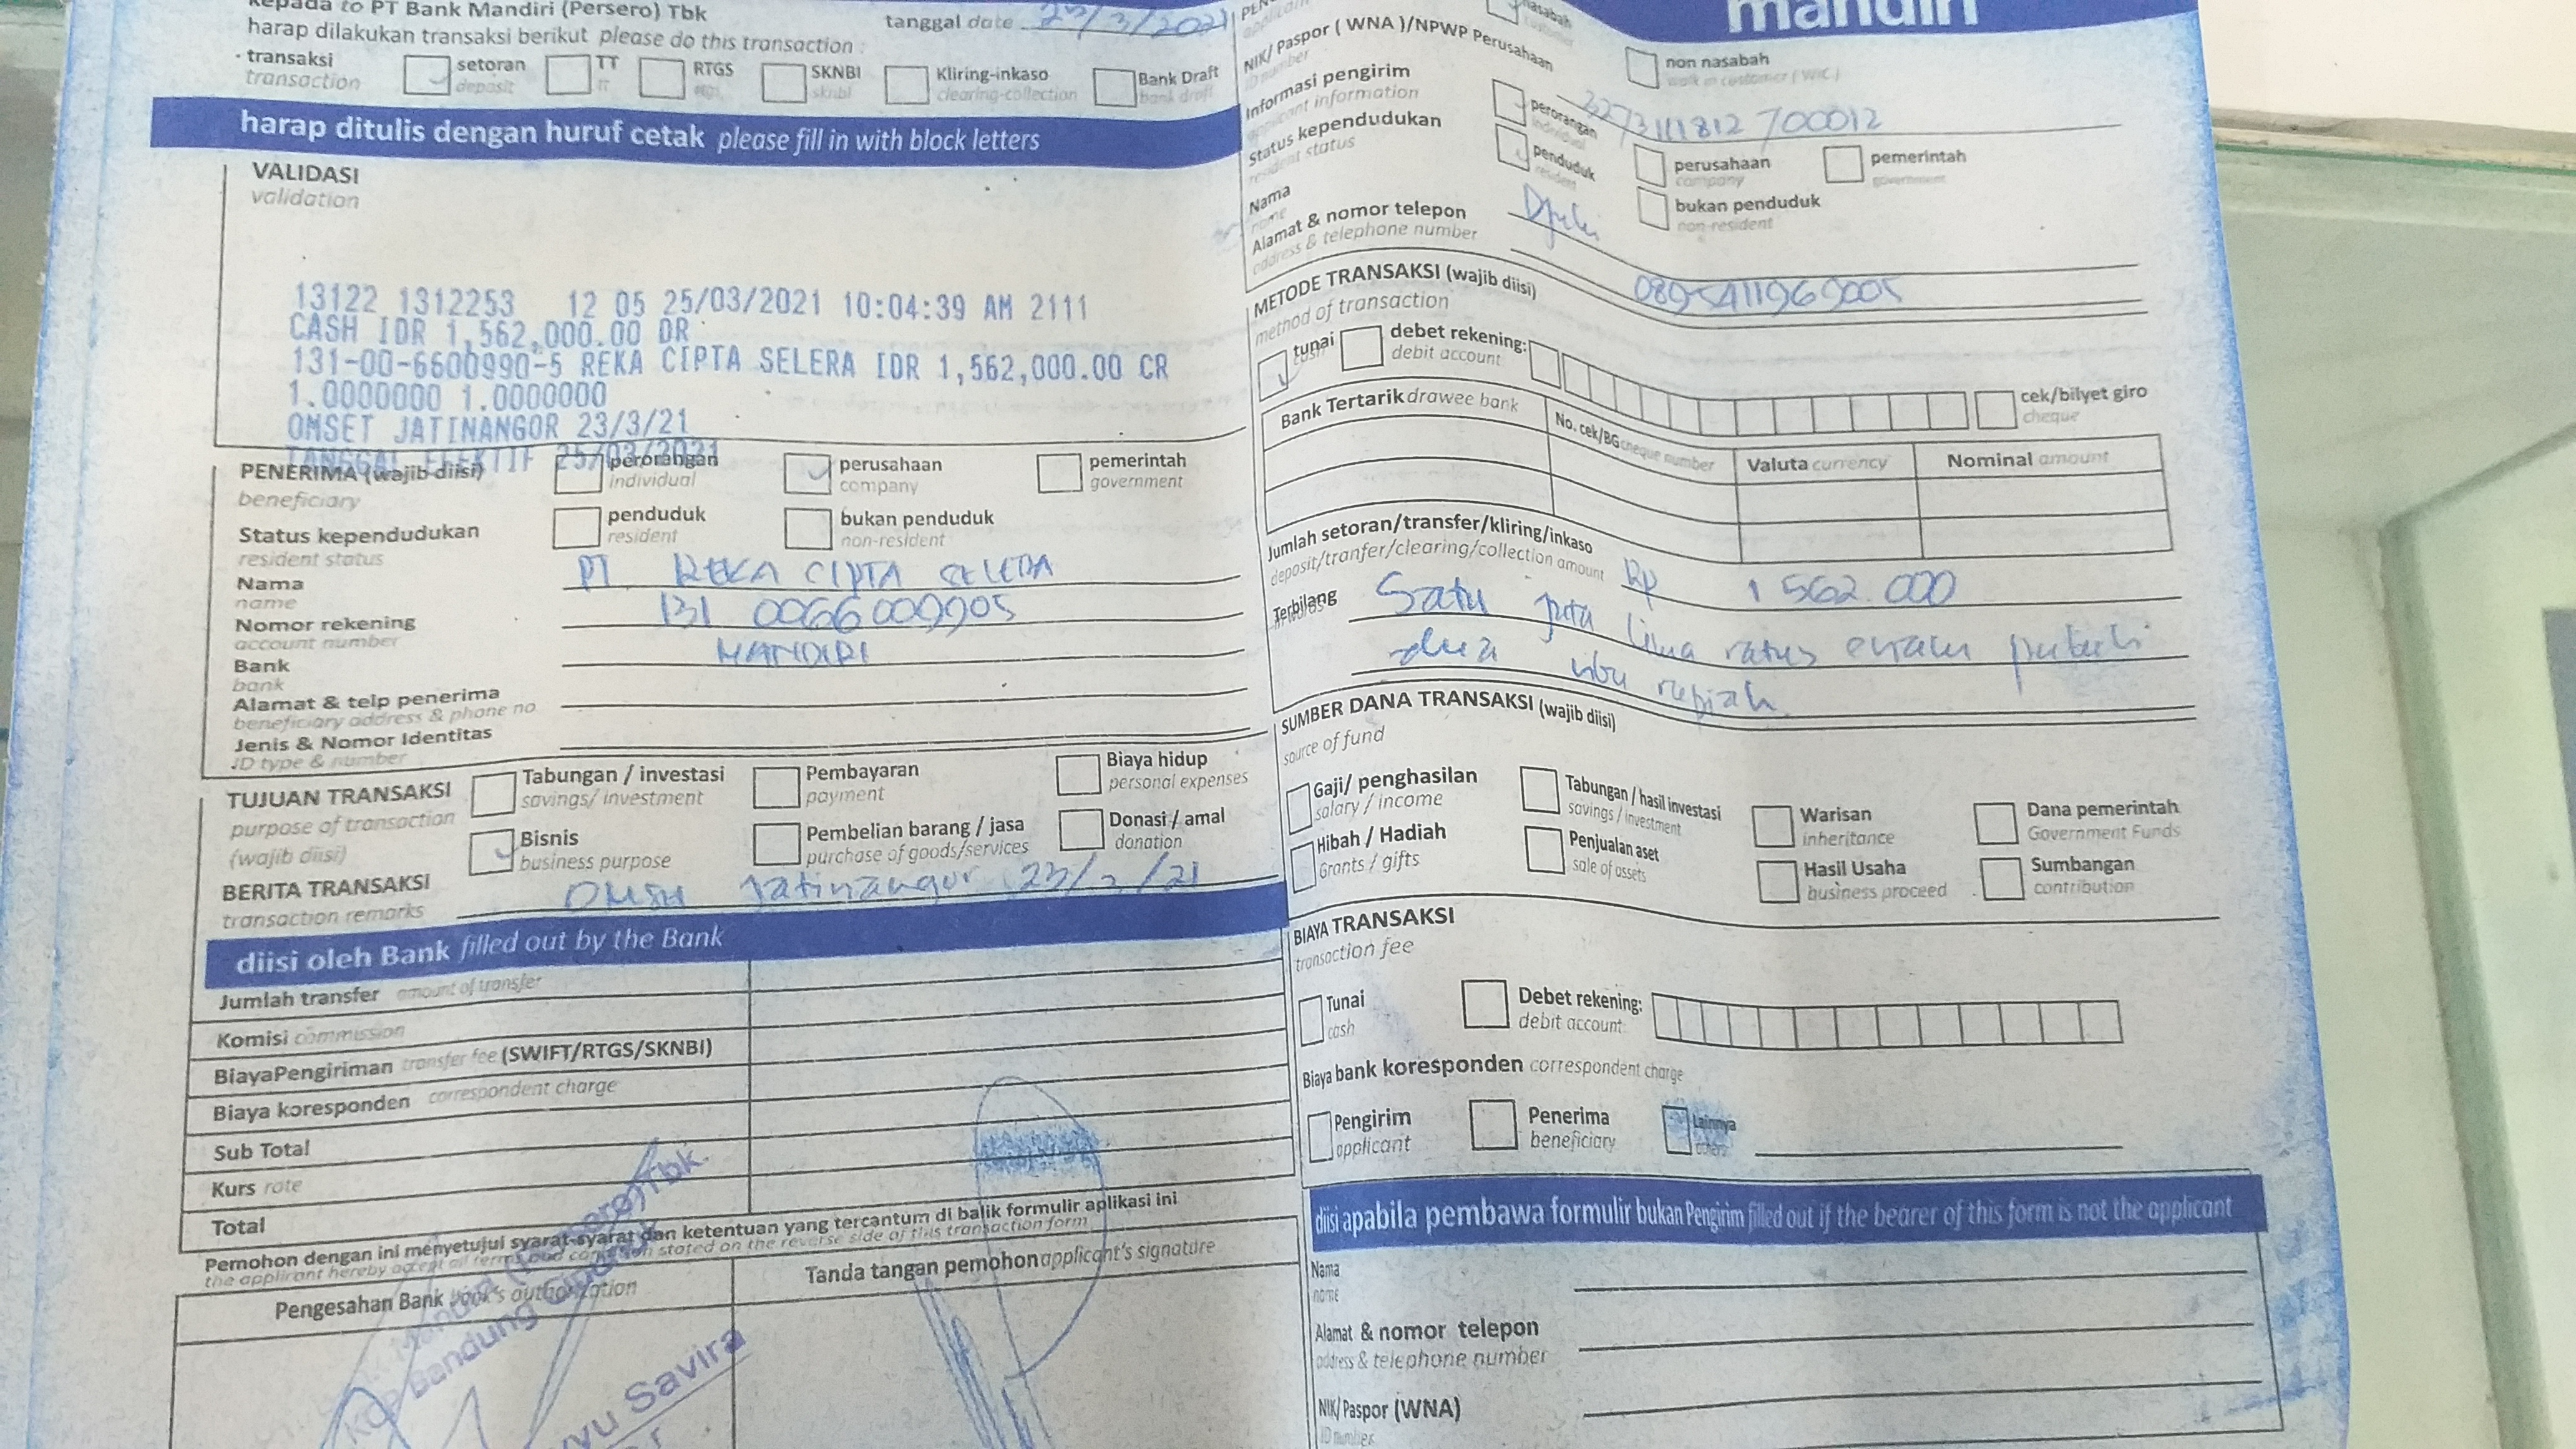 kepada to PT Bank Mandiri (Persero) Tbk
harap dilakukan transaksi berikut please do this transaction :
tanggal date 25/3/2021
transaksi
transaction
setoran
deposit
TT
RTGS
SKNBI
Kliring-inkaso
clearing-collection
Bank Draft
bank draft
harap ditulis dengan huruf cetak please fill in with block letters
VALIDASI
validation
13122 1312253 12 05 25/03/2021 10:04:39 AM 2111
CASH IDR 1,562,000.00 DR
131-00-6600990-5 REKA CIPTA SELERA IDR 1,562,000.00 CR
1.0000000 1.0000000
OMSET JATINANGOR 23/3/21
25/03/2021
PENERIMA (wajib diisi)
beneficiary
perorangan
individual
perusahaan
company
pemerintah
government
Status kependudukan
resident status
penduduk
resident
bukan penduduk
non-resident
Nama
name
PT. REKA CIPTA
Nomor rekening
account number
Bank
bank
MANDIRI
Alamat & telp penerima
beneficiary address & phone no
Jenis & Nomor Identitas
ID type & number
TUJUAN TRANSAKSI
purpose of transaction
(wajib diisi)
Tabungan / investasi
savings/ investment
Pembayaran
payment
Biaya hidup
personal expenses
Bisnis
business purpose
Pembelian barang / jasa
purchase of goods/services
Donasi / amal
donation
BERITA TRANSAKSI
transaction remarks
Omset Jatinangor 23/3/21
diisi oleh Bank filled out by the Bank
Jumlah transfer amount of transfer
Komisi commission
BiayaPengiriman transfer fee (SWIFT/RTGS/SKNBI)
Biaya koresponden correspondent charge
Sub Total
Kurs rate
Total
Pemohon dengan ini menyetujui syarat-syarat dan ketentuan yang tercantum di balik formulir aplikasi ini
the applicant hereby accept all terms and condition stated on the reverse side of this transaction form
Pengesahan Bank bank's authorization
Tanda tangan pemohon applicant's signature
Bandung
Savira
mandiri
nasabah
non nasabah
walk in customer (WIC)
NIK/ Paspor ( WNA )/NPWP Perusahaan
Informasi pengirim
perorangan
perusahaan
company
pemerintah
government
Status kependudukan
penduduk
bukan penduduk
non-resident
Nama
Alamat & nomor telepon
address & telephone number
METODE TRANSAKSI (wajib diisi)
method of transaction
tunai
debet rekening:
debit account
cek/bilyet giro
cheque
Bank Tertarik drawee bank
No. cek/BG cheque number
Valuta currency
Nominal amount
Jumlah setoran/transfer/kliring/inkaso
deposit/tranfer/clearing/collection amount
Rp 1 562.000
Terbilang
Satu juta lima ratus enam puluh
dua ribu rupiah
SUMBER DANA TRANSAKSI (wajib diisi)
source of fund
Gaji/ penghasilan
salary / income
Tabungan / hasil investasi
savings / investment
Warisan
inheritance
Dana pemerintah
Government Funds
Hibah / Hadiah
Grants / gifts
Penjualan aset
sale of assets
Hasil Usaha
business proceed
Sumbangan
contribution
BIAYA TRANSAKSI
transaction fee
Tunai
cash
Debet rekening:
debit account
Biaya bank koresponden correspondent charge
Pengirim
applicant
Penerima
beneficiary
Lainnya
others
diisi apabila pembawa formulir bukan Pengirim filled out if the bearer of this form is not the applicant
Nama
name
Alamat & nomor telepon
address & telephone number
NIK/ Paspor (WNA)
ID number